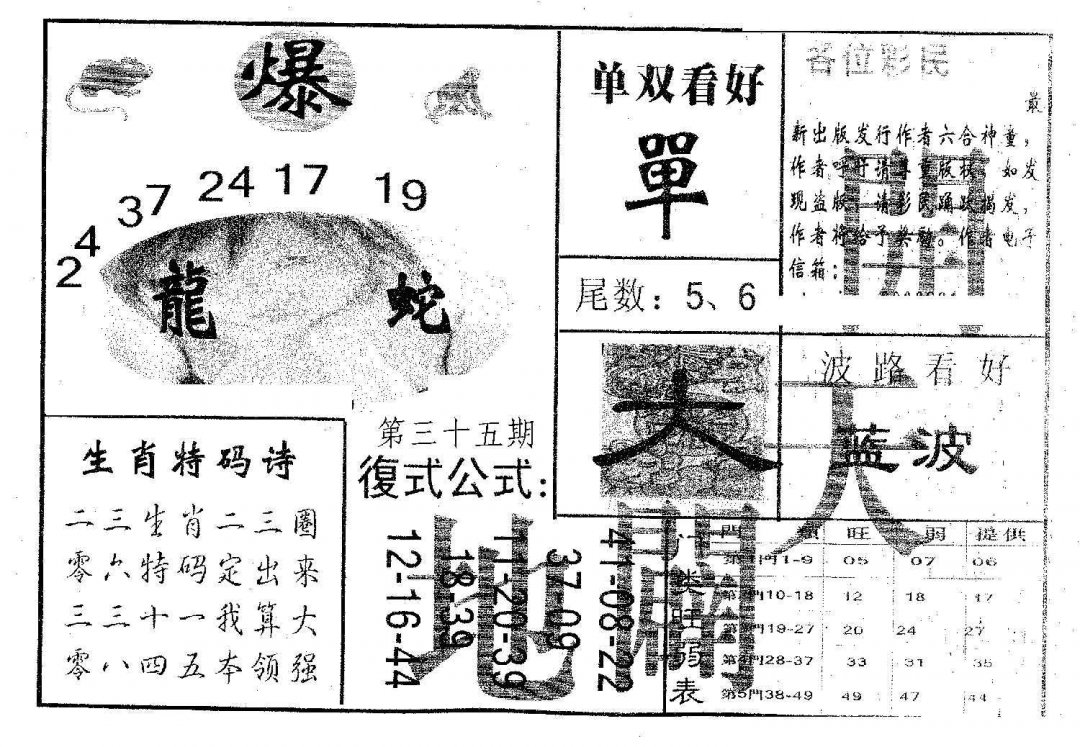 爆
2 4 37 24 17 19
龍 蛇
单双看好
單
尾数：5、6
各位彩民
最
新出版发行作者六合神童，
作者呼吁请尊重版权，如发
现盗版，请彩民踊跃揭发，
作者将给予奖励。作者电子
信箱：
開
大
波路看好
蓝波
天
生肖特码诗
二三生肖二三圈
零六特码定出来
三三十一我算大
零八四五本领强
第三十五期
復式公式：
12-16-44
18-39
11-20-39
37-09
41-08-22
地
门类旺弱表
門 類 旺 弱 提供
第1門1-9 05 07 06
第2門10-18 12 18 17
第3門19-27 20 24 27
第4門28-37 33 31 35
第5門38-49 49 47 44